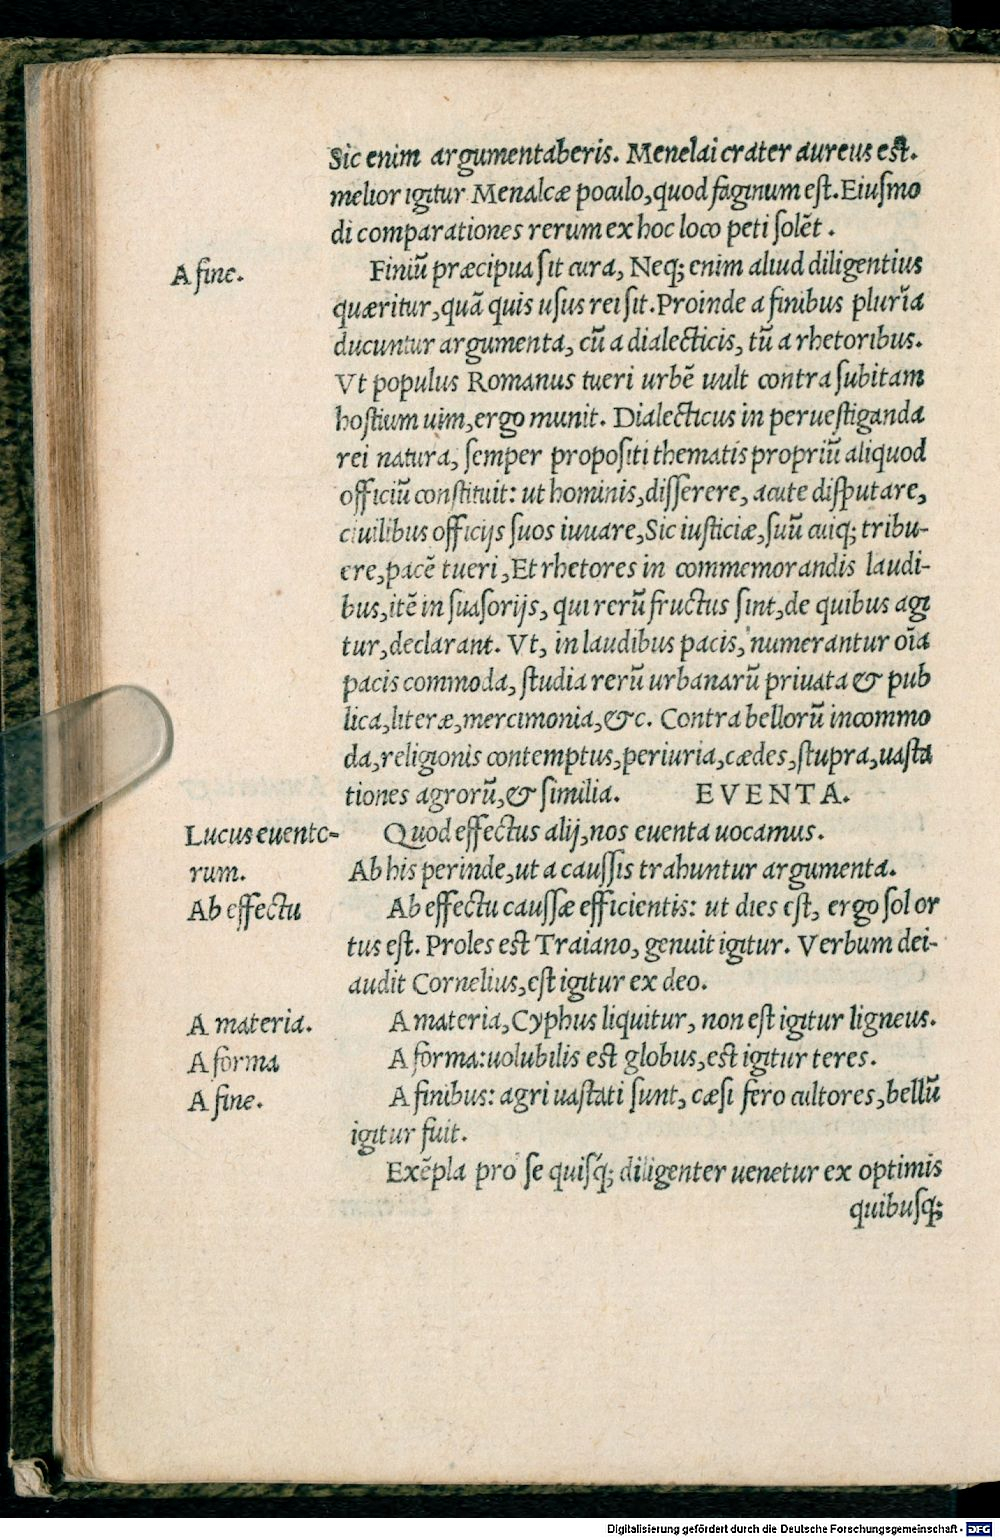 Sic enim argumentaberis. Menelai crater aureus est.
melior igitur Menalcæ poculo, quod faginum est. Eiusmo
di comparationes rerum ex hoc loco peti solēt.
A fine.
Finiū præcipua sit cura, Neq; enim aliud diligentius
quæritur, quā quis usus rei sit. Proinde a finibus plurīa
ducuntur argumenta, cū a dialecticis, tū a rhetoribus.
Vt populus Romanus tueri urbē uult contra subitam
hostium uim, ergo munit. Dialecticus in peruestiganda
rei natura, semper propositi thematis propriū aliquod
officiū constituit: ut hominis, disserere, acute disputare,
ciuilibus officijs suos iuuare, Sic iusticiæ, suū cuiq; tribu-
ere, pacē tueri, Et rhetores in commemorandis laudi-
bus, itē in suasorijs, qui rerū fructus sint, de quibus agi
tur, declarant. Vt, in laudibus pacis, numerantur oīa
pacis commoda, studia rerū urbanarū priuata & pub
lica, literæ, mercimonia, &c. Contra bellorū incommo
da, religionis contemptus, periuria, cædes, stupra, uasta
tiones agrorū, & similia. EVENTA.
Lucus euento-
rum.
Quod effectus alij, nos euenta uocamus.
Ab his perinde, ut a caussis trahuntur argumenta.
Ab effectu
Ab effectu caussæ efficientis: ut dies est, ergo sol or
tus est. Proles est Traiano, genuit igitur. Verbum dei-
audit Cornelius, est igitur ex deo.
A materia.
A materia, Cyphus liquitur, non est igitur ligneus.
A forma
A forma: uolubilis est globus, est igitur teres.
A fine.
A finibus: agri uastati sunt, cæsi fero cultores, bellū
igitur fuit.
Exēpla pro se quisq́; diligenter uenetur ex optimis
quibusq;
Digitalisierung gefördert durch die Deutsche Forschungsgemeinschaft - DFG